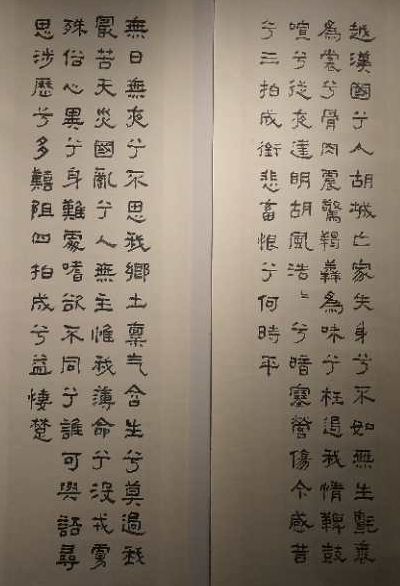 越漢國兮入胡城亡家失身兮不如無生氈裘
為裳兮骨肉震驚羯羶為味兮枉遏我情鞞鼓
喧兮從夜達明胡風浩〻兮暗塞營傷今感昔
兮三拍成銜悲畜恨兮何時平
無日無夜兮不思我鄉土稟气含生兮莫過我
最苦天災國亂兮人無主惟我薄命兮沒戎虜
殊俗心異兮身難處嗜欲不同兮誰可與語尋
思涉歷兮多艱阻四拍成兮益悽楚